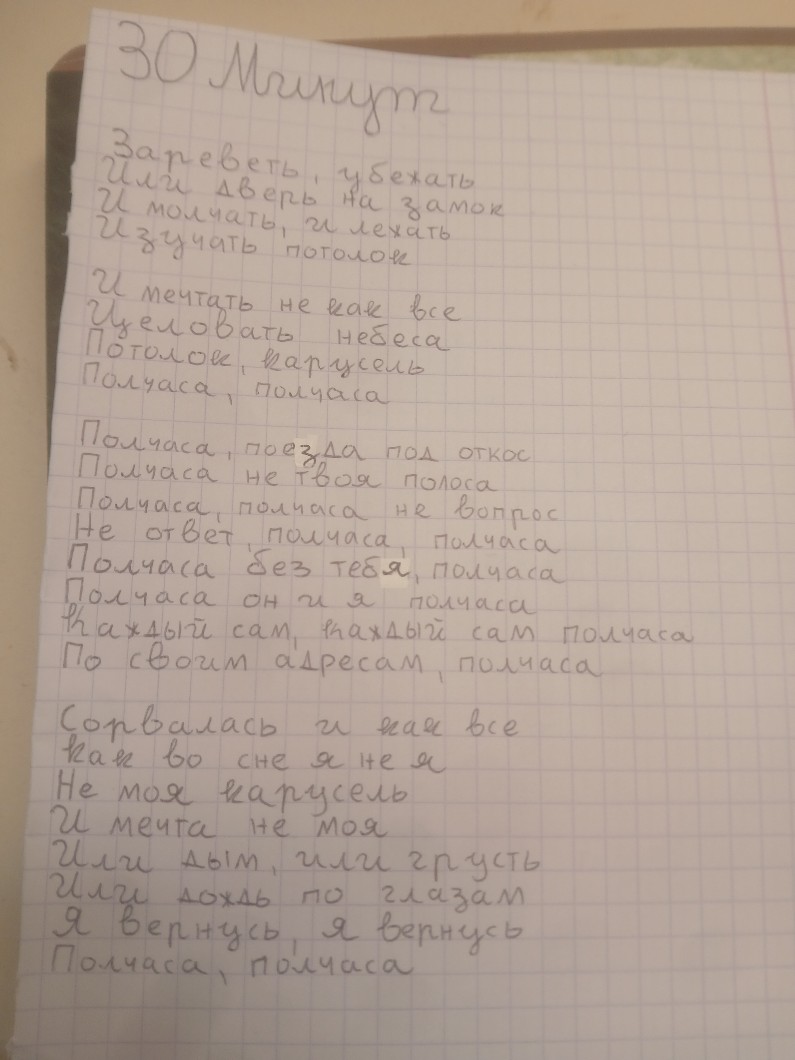 30 Минут
Зареветь, убежать
Или дверь на замок
И молчать, и лежать
Изучать потолок
И мечтать не как все
Целовать небеса
Потолок, карусель
Полчаса, полчаса
Полчаса, поезда под откос
Полчаса не твоя полоса
Полчаса, полчаса не вопрос
Не ответ, полчаса, полчаса
Полчаса без тебя, полчаса
Полчаса он и я полчаса
Каждый сам, каждый сам полчаса
По своим адресам, полчаса
Сорвалась и как все
Как во сне я не я
Не моя карусель
И мечта не моя
Или дым, или грусть
Или дождь по глазам
Я вернусь, я вернусь
Полчаса, полчаса